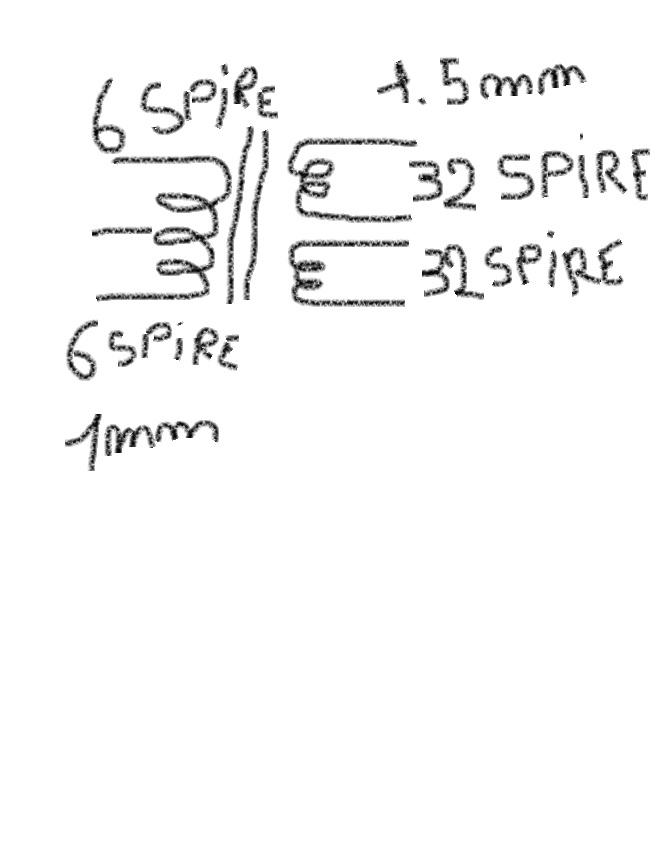 6 SPiRE
1.5mm
32 SPiRE
32 SPiRE
6 SPiRE
1mm